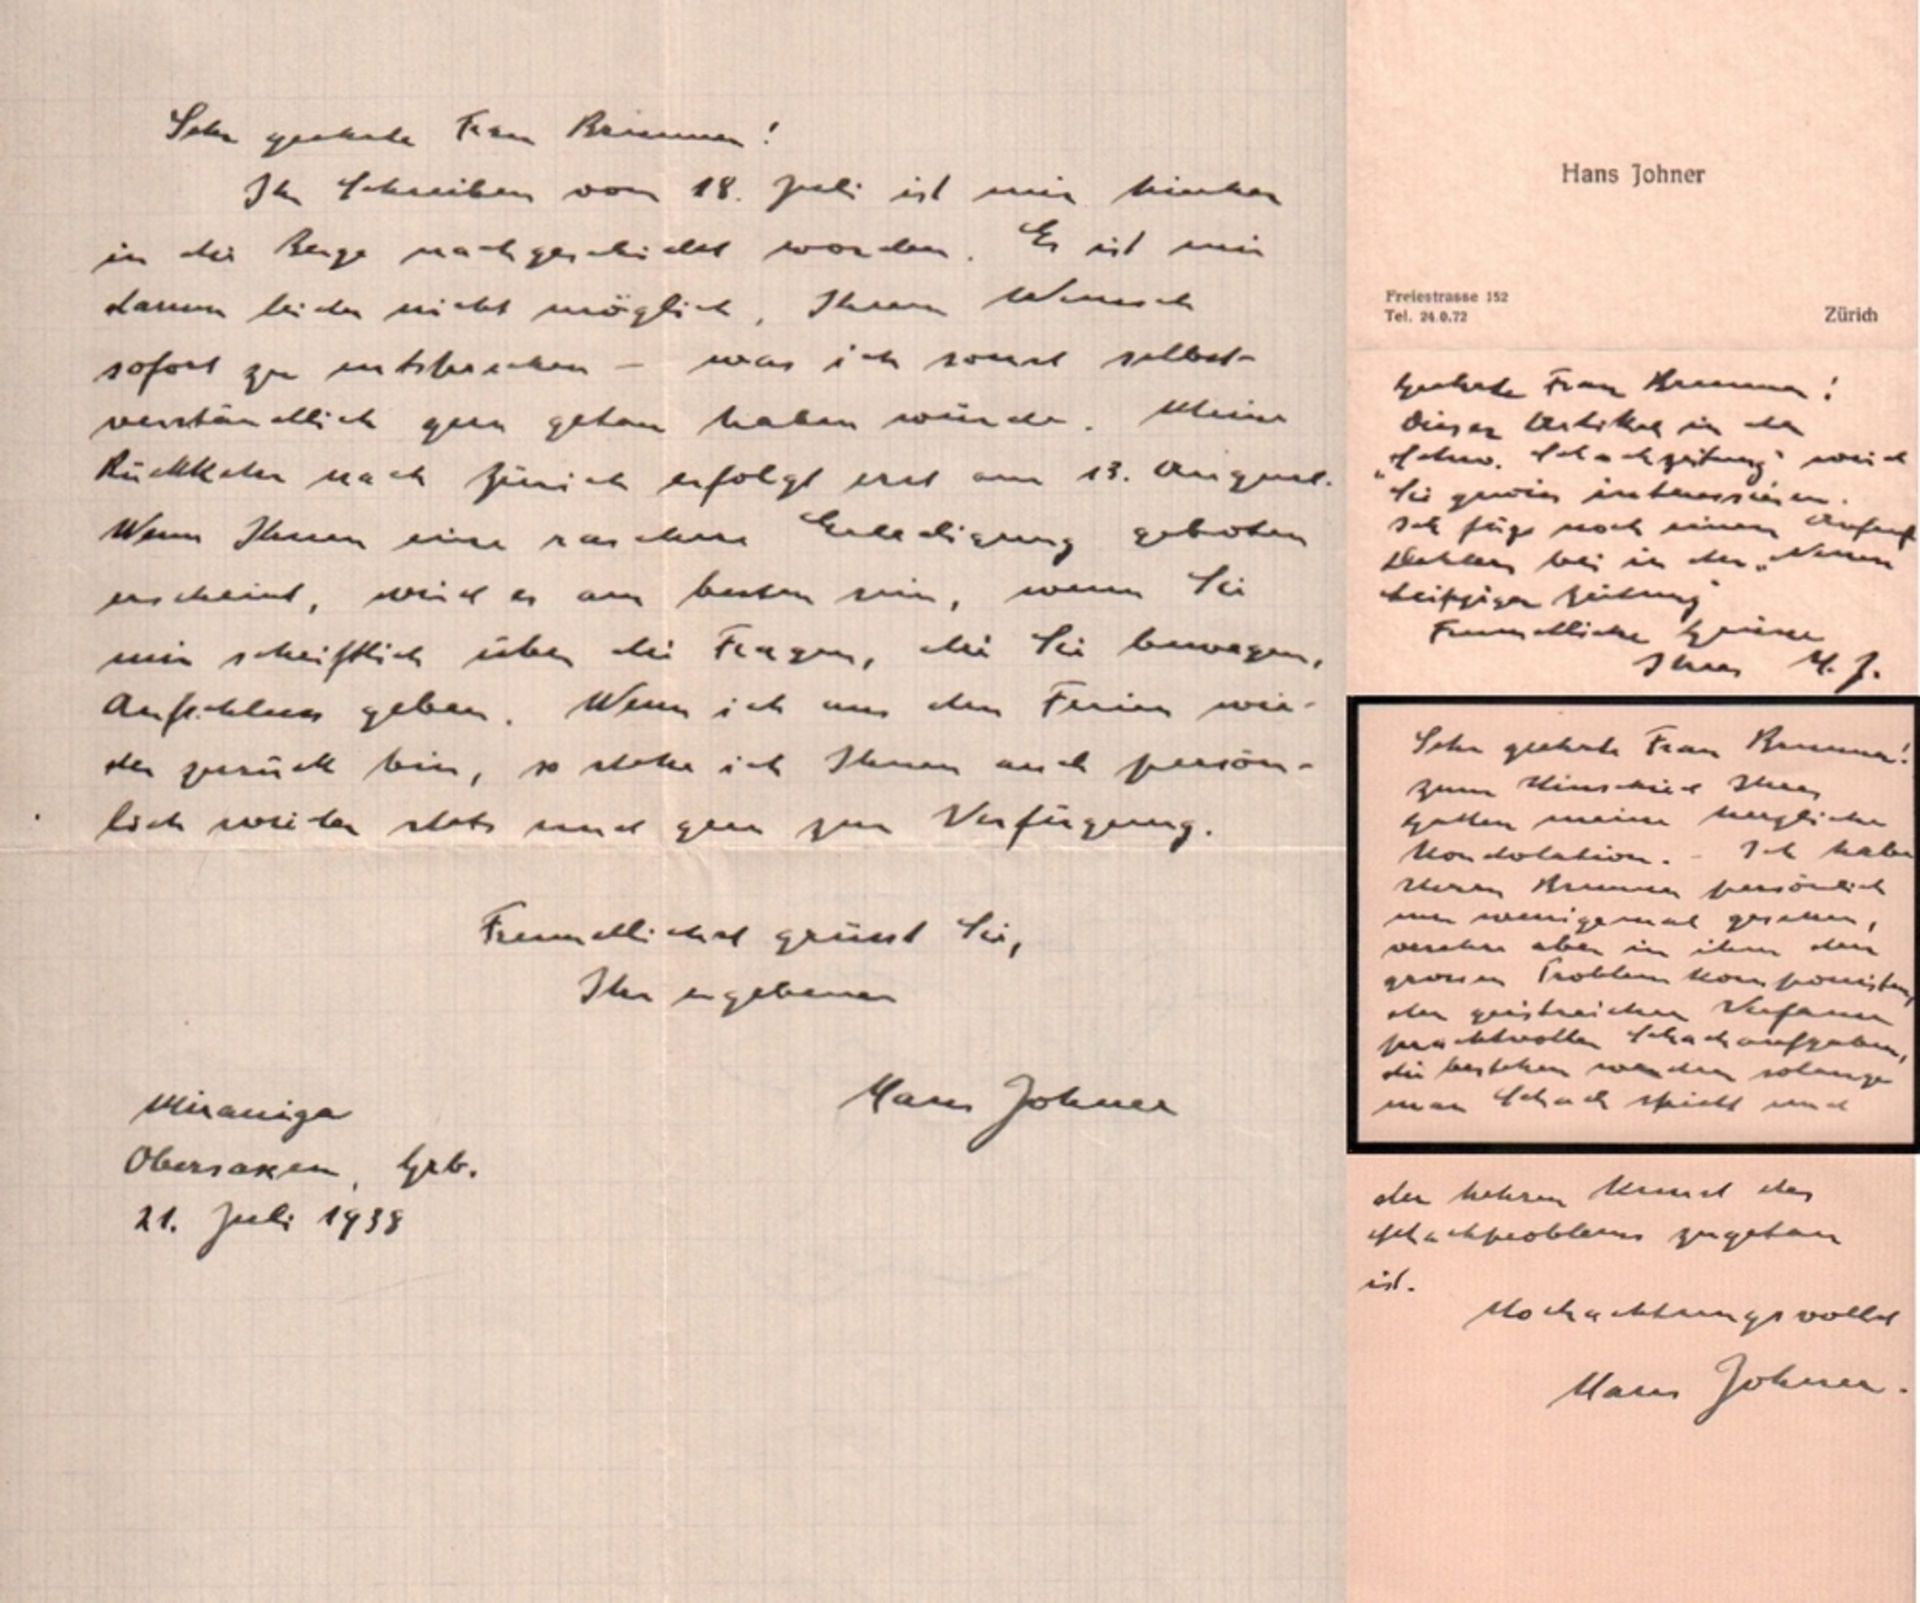 Sehr geehrte Frau Brunner!
Ihr Schreiben vom 18. Juli ist mir hierher
in die Berge nachgeschickt worden. Es ist mir
darum leider nicht möglich, Ihrem Wunsch
sofort zu entsprechen — was ich sonst selbst-
verständlich gern getan haben würde. Meine
Rückkehr nach Zürich erfolgt erst am 13. August.
Wenn Ihnen eine raschere Erledigung geboten
erscheint, wird es am besten sein, wenn Sie
mir schriftlich über die Fragen, die Sie bewegen,
Aufschluss geben. Wenn ich aus den Ferien wie-
der zurück bin, so stehe ich Ihnen auch persön-
lich weiter stets und gern zur Verfügung.
Freundlichst grüsst Sie,
Ihr ergebener
Hans Johner
Miraniga
Obersaxen, Grb.
21. Juli 1938
Hans Johner
Freiestrasse 152
Tel. 24.0.72
Zürich
Geehrte Frau Brunner!
Dieser Artikel in der
"Schw. Schachzeitung" wird
Sie gewiss interessieren.
Ich füge noch einen
bei in der „Neuen
Leipziger Zeitung"
Freundliche Grüsse
Ihres H. J.
Sehr geehrte Frau Brunner!
Zum Hinschied Ihres
Gatten meine herzliche
Kondolation. - Ich habe
Herrn Brunner persönlich
nur wenigemal gesehen,
verehre aber in ihm den
grossen Problemkomponisten,
den geistreichen Verfasser
prachtvoller Schachaufgaben,
die bestehen werden solange
man Schach spielt und
der hehren Kunst des
Schachproblems zugetan
ist.
Hochachtungsvollst
Hans Johner.